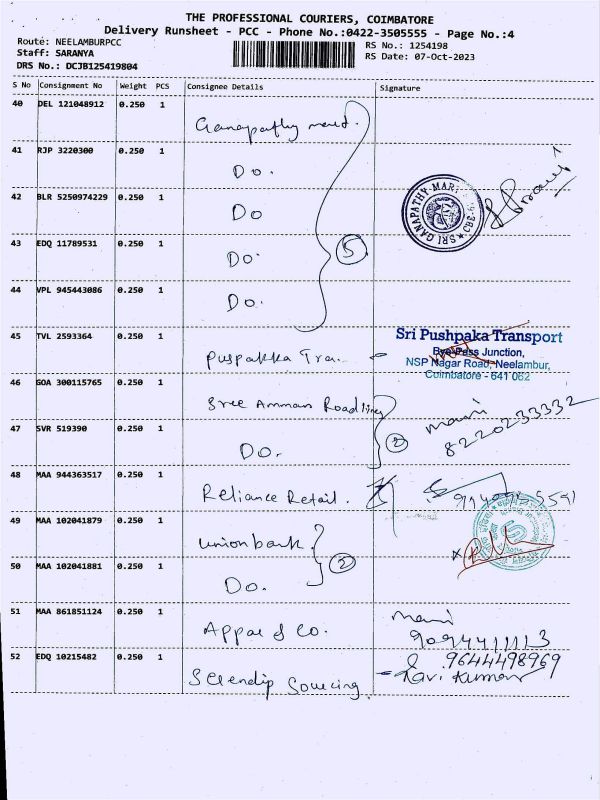 THE PROFESSIONAL COURIERS, COIMBATORE
Delivery Runsheet - PCC - Phone No.:0422-3505555 - Page No.:4
Route: NEELAMBURPCC
RS No.: 1254198
Staff: SARANYA
RS Date: 07-Oct-2023
DRS No.: DCJB125419804
S No Consignment No Weight PCS Consignee Details Signature
40 DEL 121048912 0.250 1
Ganapathy
41 RJP 3220300 0.250 1
Do.
42 BLR 5250974229 0.250 1
Do
43 EDQ 11789531 0.250 1
Do.
5
SRI GANAPATHY CBE
44 VPL 945443086 0.250 1
Do.
45 TVL 2593364 0.250 1
Puspakka Tra.
Sri Pushpaka Transport
Bye Pass Junction,
NSP Nagar Road, Neelambur,
Coimbatore - 641 062
46 GOA 300115765 0.250 1
Sree Amman Roadlines
mani
8220233332
47 SVR 519390 0.250 1
Do.
2
48 MAA 944363517 0.250 1
Reliance Retail.
49 MAA 102041879 0.250 1
union bank
50 MAA 102041881 0.250 1
Do.
2
51 MAA 861851124 0.250 1
Appae & Co.
mani
9094411113
52 EDQ 10215482 0.250 1
Serendip Sourcing
9644498969
Kumar